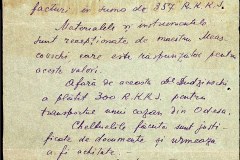 facturi în suma de 357 R.K.K.S.
Materialele și instrumentele
sunt recepționate de maestru Meas
covschi care este răspunzător pentru
aceste valori.
Afară de aceasta
a plătit 300 R.K.K.S. pentru
transportul unui cazan din Odesa.
Cheltuelile făcute sunt justi
ficate de documente și urmeaza
a fi achitate.